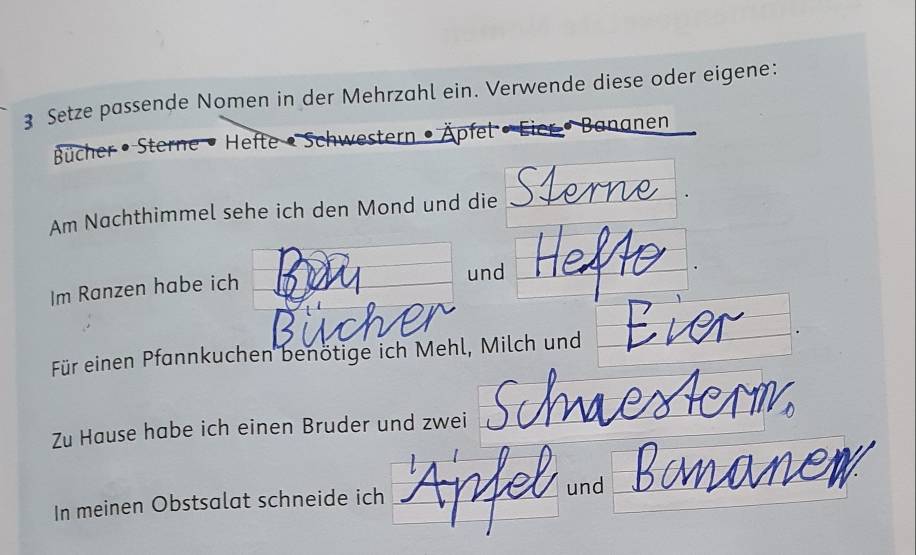 3 Setze passende Nomen in der Mehrzahl ein. Verwende diese oder eigene:
Bücher • Sterne • Hefte • Schwestern • Äpfel • Eier • Bananen
Am Nachthimmel sehe ich den Mond und die Sterne .
Im Ranzen habe ich und Hefte .
Bücher
Für einen Pfannkuchen benötige ich Mehl, Milch und Eier .
Zu Hause habe ich einen Bruder und zwei Schwestern.
In meinen Obstsalat schneide ich Äpfel und Bananen.